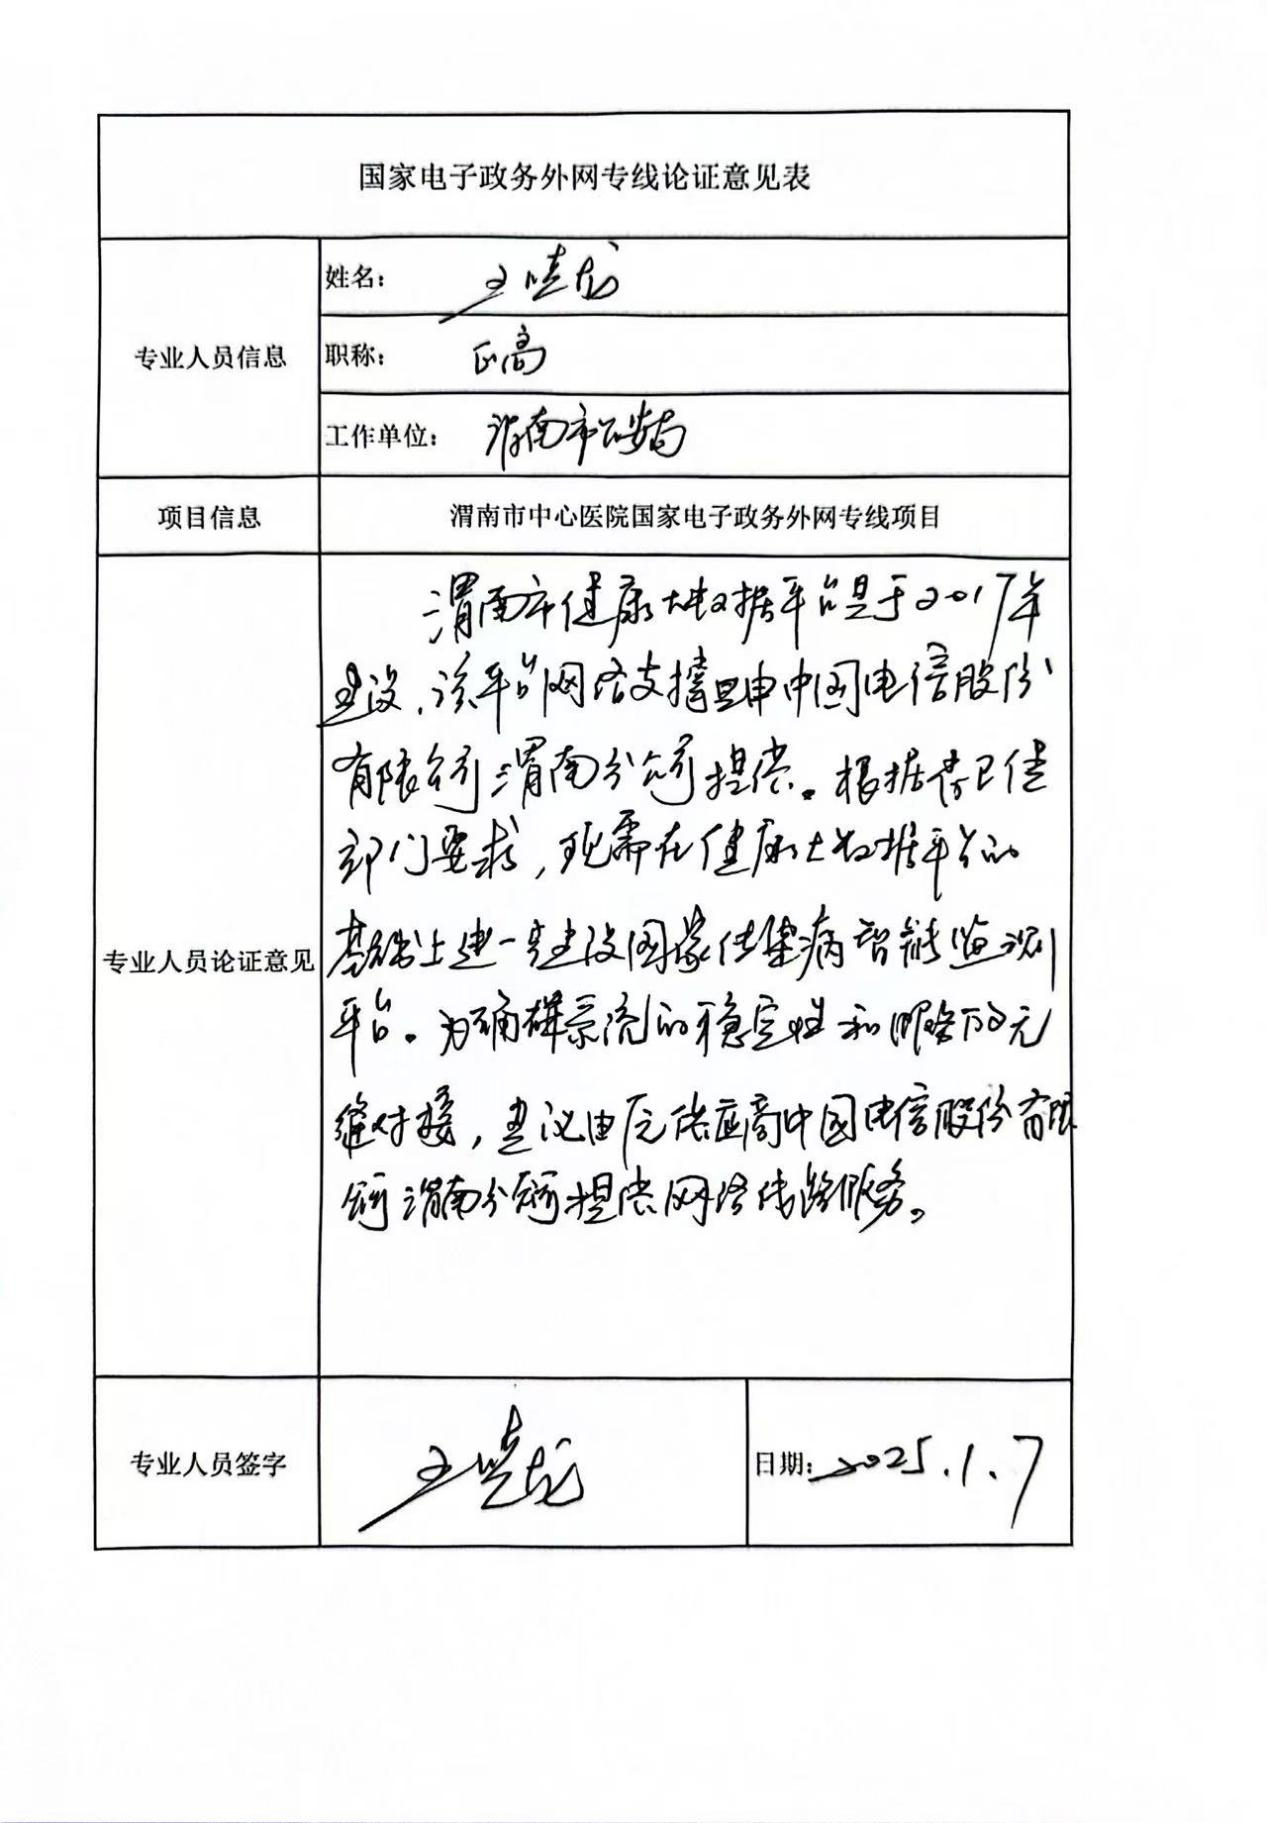 国家电子政务外网专线论证意见表
专业人员信息
姓名：王晓龙
职称：正高
工作单位：渭南市公安局
项目信息
渭南市中心医院国家电子政务外网专线项目
专业人员论证意见
渭南市健康大数据平台是于2017年
建设，该平台网络支撑是由中国电信股份
有限公司渭南分公司提供。根据省卫健
部门要求，现需在健康大数据平台的
基础上进一步建设国家传染病智能监测
平台。为确保系统的稳定性和服务的无
缝对接，建议由原供应商中国电信股份有限
公司渭南分公司提供网络线路服务。
专业人员签字
王晓龙
日期：2025.1.7